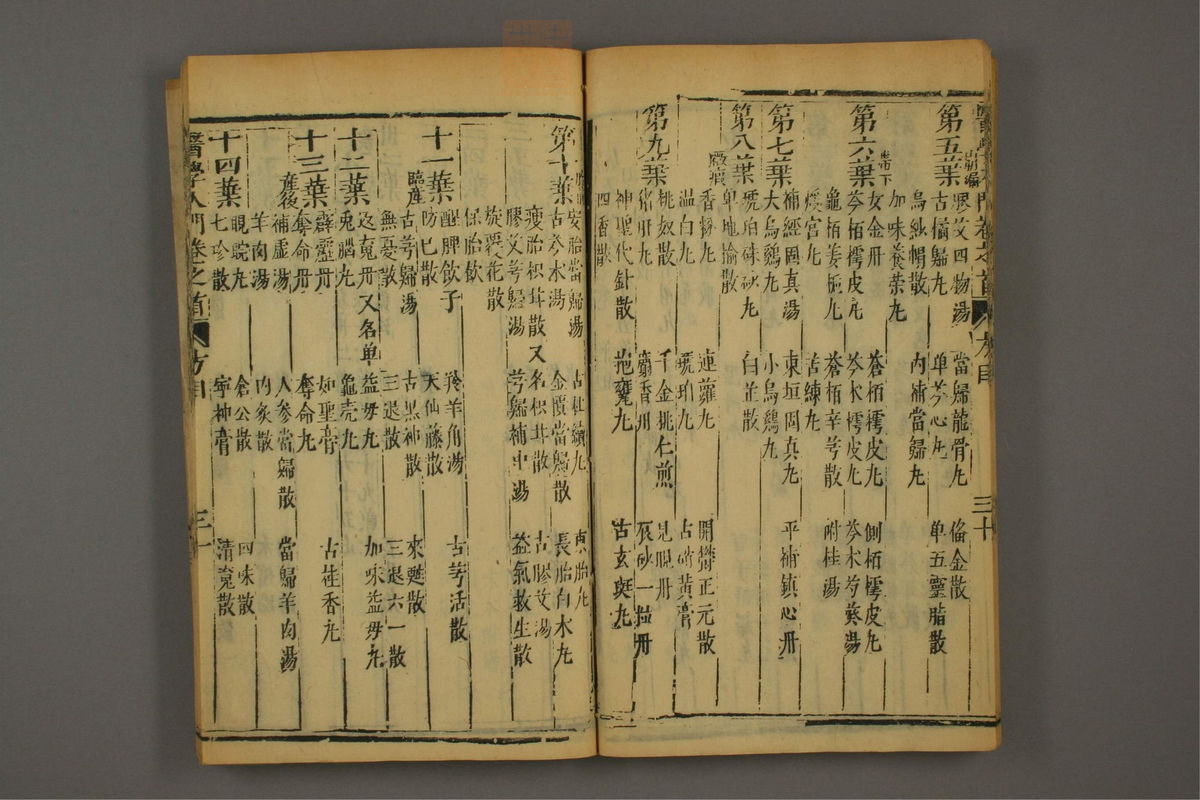 醫學入門卷之首 方目 三十
第五葉 崩漏 膠艾四物湯 當歸龍骨丸 俻金散
古橘歸丸 单芩心丸 单五靈脂散
烏紗帽散 內補當歸丸
加味養榮丸
第六葉 帶下 女金丹 蒼栢樗皮丸 側栢樗皮丸
芩栢樗皮丸 芩术樗皮丸 芩术芍葵湯
龜栢姜栀丸 蒼栢辛芎散 附桂湯
煖宫丸 苦練丸
第七葉 補經固真湯 東垣固真丸 平補鎮心丹
大烏鷄丸 小烏鷄丸
琥珀硃砂丸 白芷散
第八葉 癥瘕 单地榆散
香棱丸 連蘿丸 開欝正元散
温白丸 琥珀丸 古硝黄膏
第九葉 桃奴散 千金桃仁煎 見晛丹
麝香丹 辰砂一粒丹
神聖代針散 抱甕丸 古玄斑丸
四香散
第十葉 安胎當歸湯 古杜續丸
古芩术湯 金匱當歸散 長胎白术丸
瘦胎枳甘散又名枳甘散 古膠艾湯
膠艾芎歸湯 芎歸補中湯 益氣救生散
旋覆花散
保胎飲
十一葉 臨產 醒脾飲子 羚羊角湯 古芎活散
防已散 天仙藤散
古芎歸湯 古黑神散 來甦散
無憂散 三退散 三退六一散
十二葉 返䰟丹又名单益毋丸 加味益毋丸
兎腦丸 龜壳丸
霹靂丹 如聖膏 古桂香丸
十三葉 產後 奪命丹 奪命丸
補虛湯 人參當歸散 當歸羊肉湯
羊肉湯 肉炙散
十四葉 睍睆丸 倉公散 四味散
七珍散 寧神膏 清䰟散
醫學入門卷之首 方目 三一